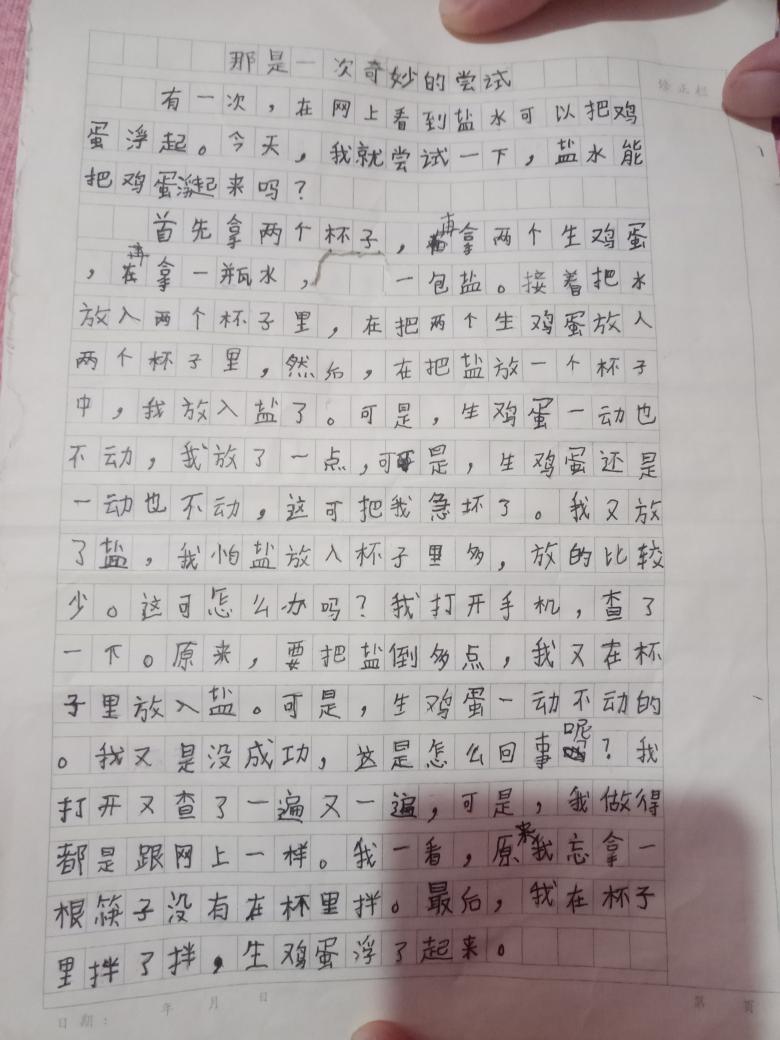 那是一次奇妙的尝试
修正栏
有一次，在网上看到盐水可以把鸡
蛋浮起。今天，我就尝试一下，盐水能
把鸡蛋浮起来吗？
首先拿两个杯子，再拿两个生鸡蛋
，再拿一瓶水，一包盐。接着把水
放入两个杯子里，在把两个生鸡蛋放入
两个杯子里，然后，在把盐放一个杯子
中，我放入盐了。可是，生鸡蛋一动也
不动，我放了一点，可是，生鸡蛋还是
一动也不动，这可把我急坏了。我又放
了盐，我怕盐放入杯子里多，放的比较
少。这可怎么办吗？我打开手机，查了
一下。原来，要把盐倒多点，我又在杯
子里放入盐。可是，生鸡蛋一动不动的
。我又是没成功，这是怎么回事呢？我
打开又查了一遍又一遍，可是，我做得
都是跟网上一样。我一看，原来我忘拿一
根筷子没有在杯里拌。最后，我在杯子
里拌了拌，生鸡蛋浮了起来。
日期： 年 月 日 第 页